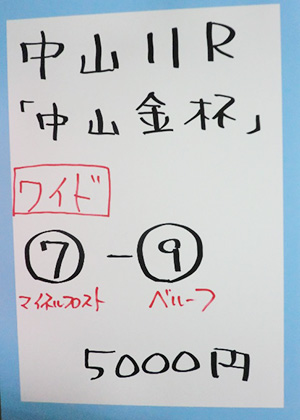 中山11R
「中山金杯」
ワイド
⑦ー⑨
マイネルフロスト ベルーフ
5000円